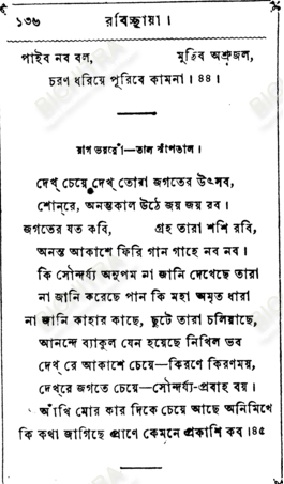 ১৩৬ রবিচ্ছায়া।
পাইব নব বল, মুছিব অশ্রুজল,
চরণ ধরিয়ে পূরিবে কামনা। ৪৪।
রাগ ভয়রোঁ—তাল ঝাঁপতাল।
দেখ্ চেয়ে দেখ্ তোরা জগতের উৎসব,
শোন্‌রে, অনন্তকাল উঠে জয় জয় রব।
জগতের যত কবি, গ্রহ তারা শশি রবি,
অনন্ত আকাশে ফিরি গান গাহে নব নব॥
কি সৌন্দর্য্য অনুপম না জানি দেখেছে তারা
না জানি করেছে পান কি মহা অমৃত ধারা
না জানি কাহার কাছে, ছুটে তারা চলিয়াছে,
আনন্দে ব্যাকুল যেন হয়েছে নিখিল ভব
দেখ্ রে আকাশে চেয়ে—কিরণে কিরণময়,
দেখ্‌রে জগতে চেয়ে—সৌন্দর্য্য-প্রবাহ বয়।
আঁখি মোর কার দিকে চেয়ে আছে অনিমিখে
কি কথা জাগিছে প্রাণে কেমনে প্রকাশি কব।৪৫